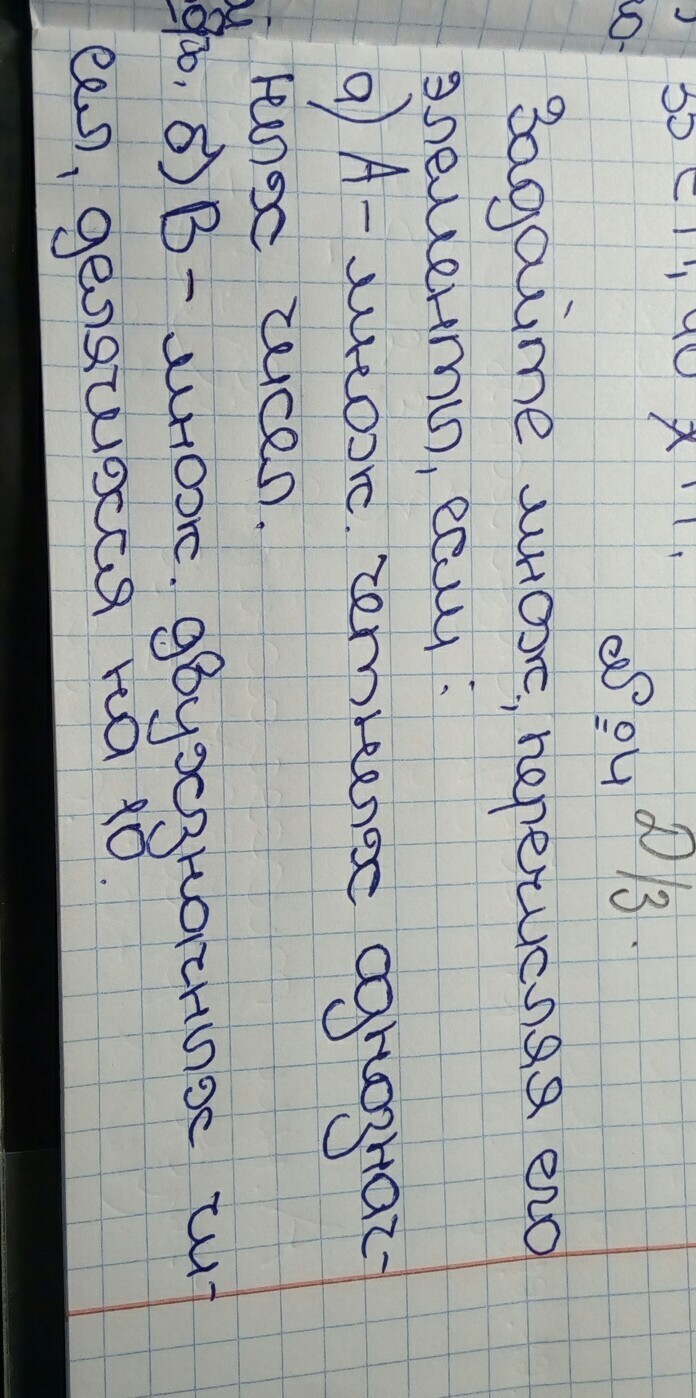 №4 Д/З.
Задайте множ., перечисляя его
элементы, если:
а) А - множ. четных однознач-
ных чисел.
б) В - множ. двухзначных чи-
сел, делящихся на 10.